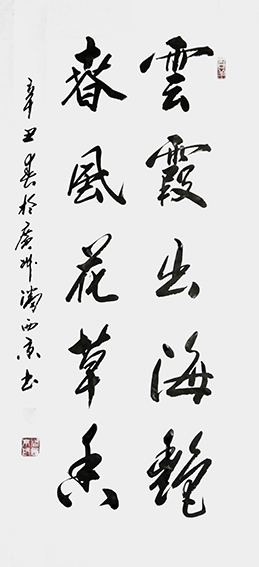 雲霞出海艷
春風花草香
辛丑春於廣州西京書